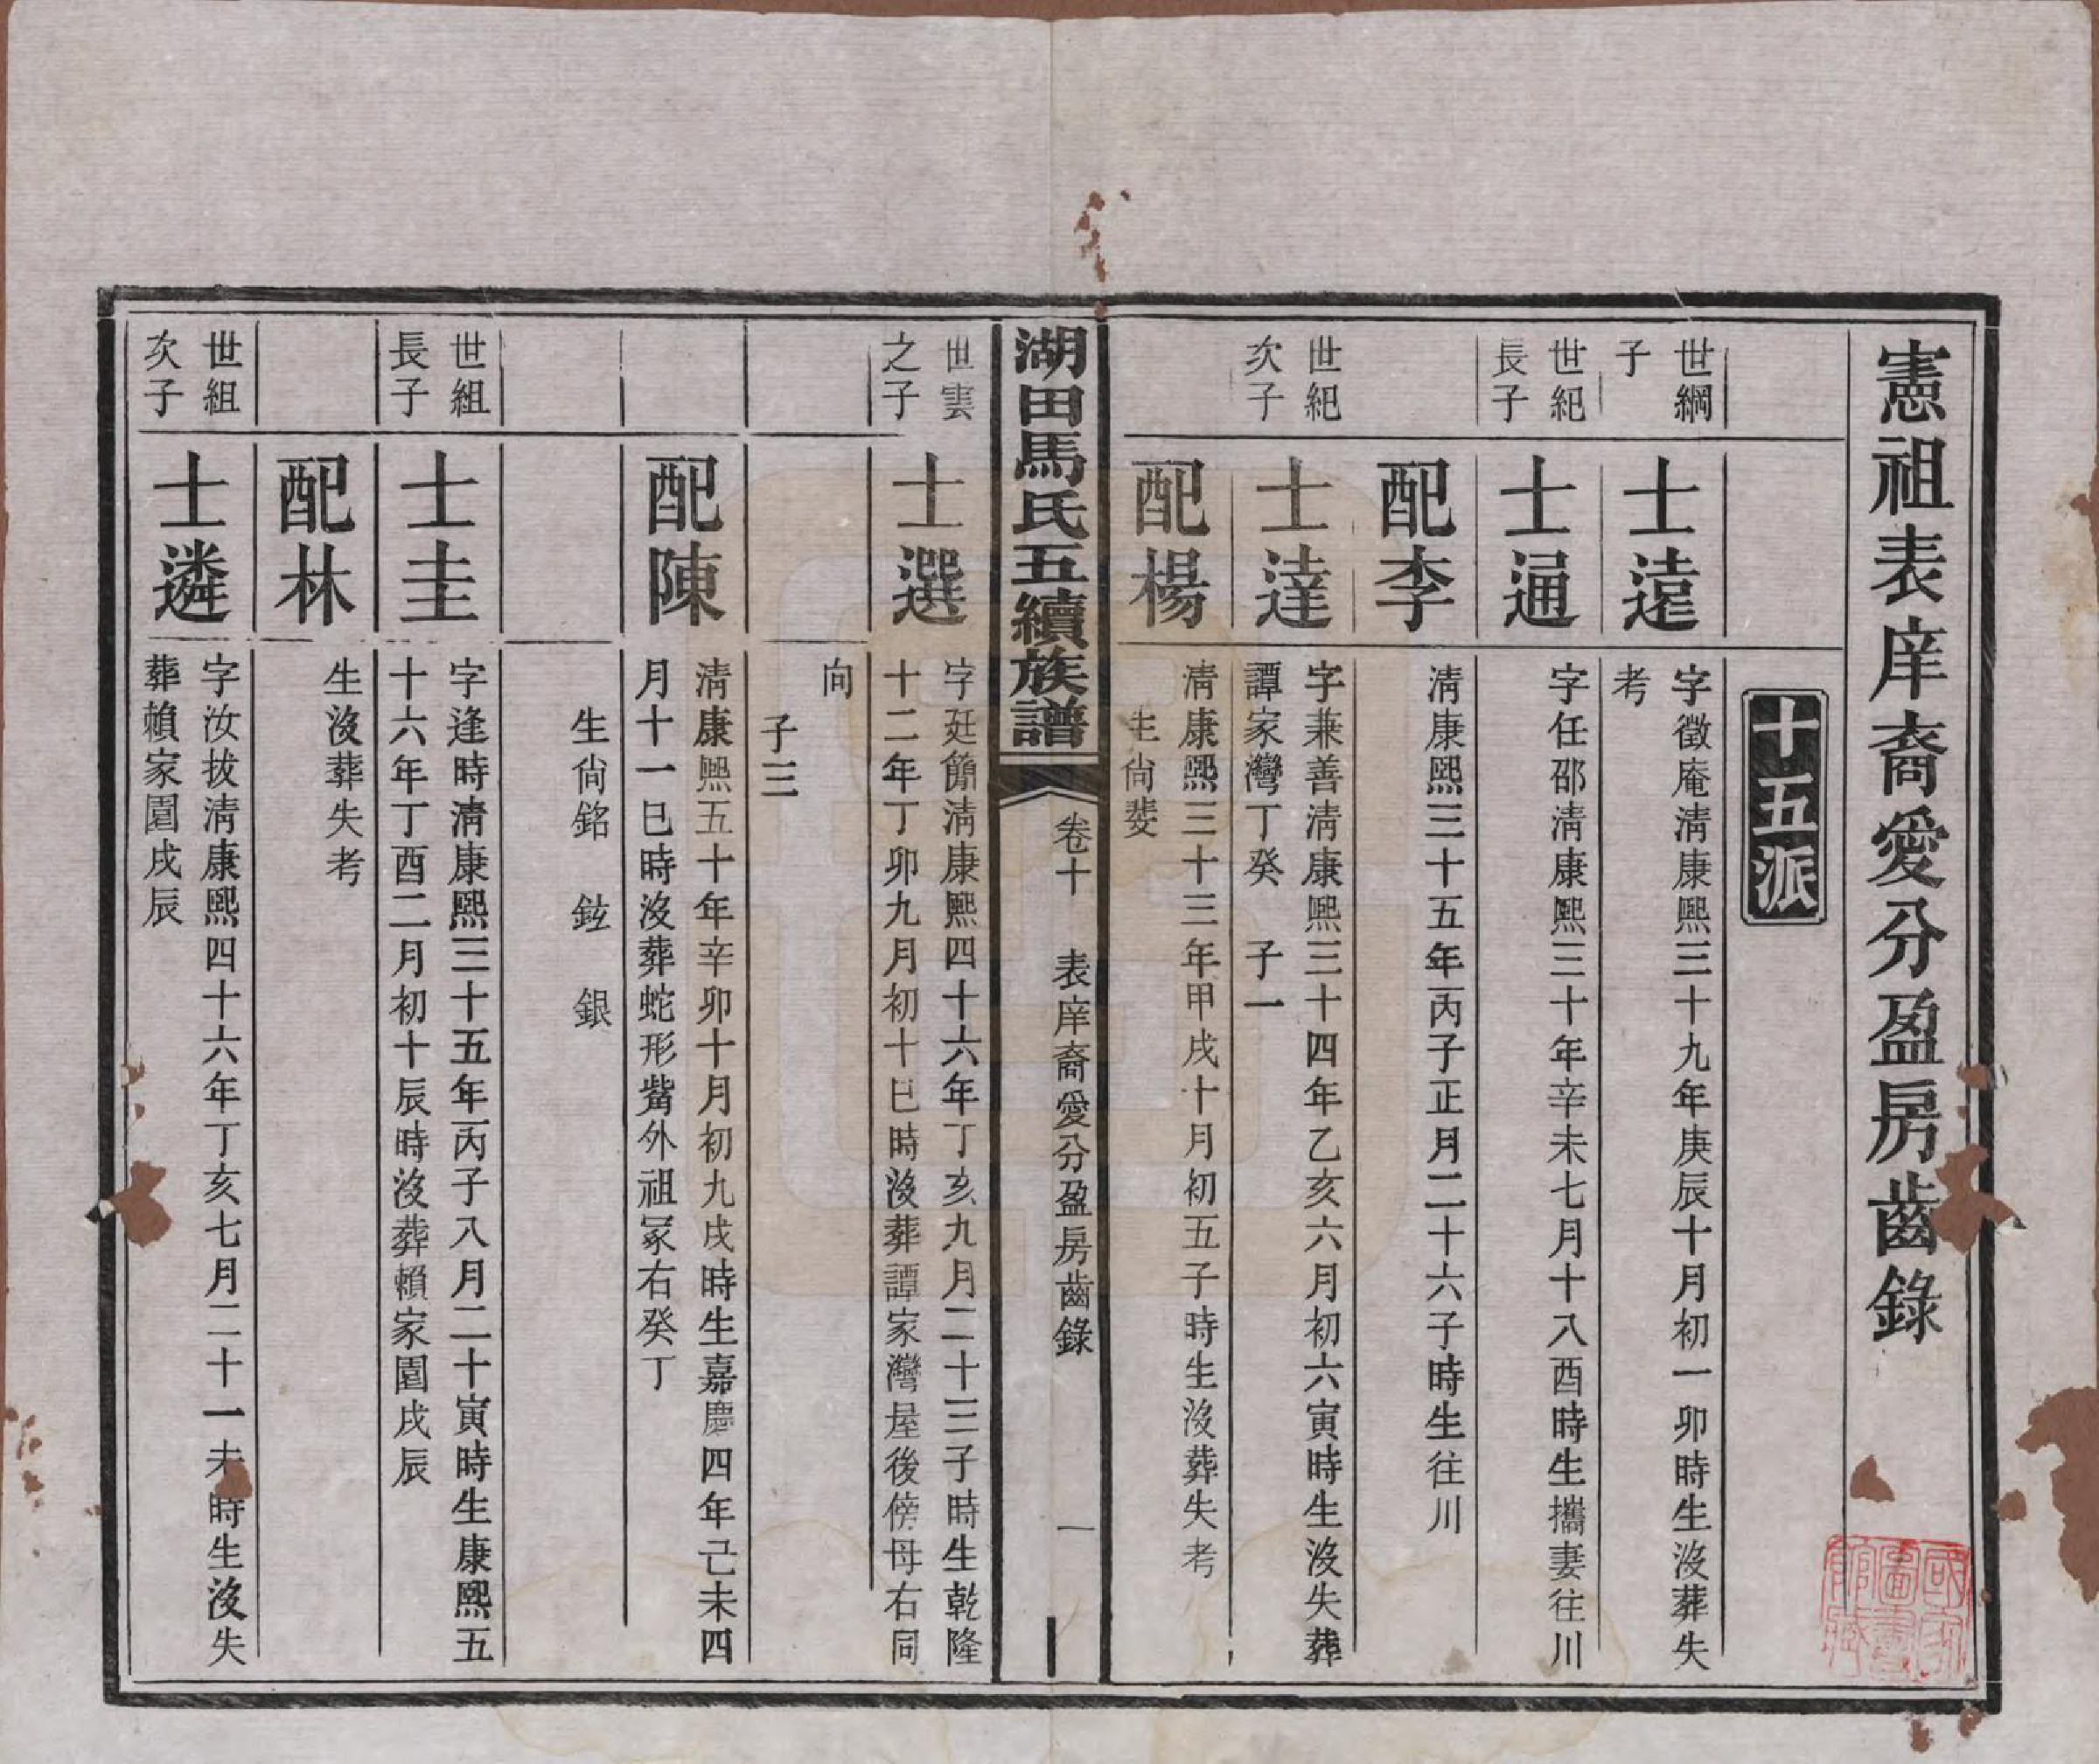 憲祖表庠裔愛分盈房齒錄
十五派
世綱
子
士遠
字徵庵淸康熙三十九年庚辰十月初一卯時生沒葬失
考
世紀
長子
士通
字任邵淸康熙三十年辛未七月十八酉時生攜妻往川
配李
淸康熙三十五年丙子正月二十六子時生往川
世紀
次子
士達
字兼善淸康熙三十四年乙亥六月初六寅時生沒失葬
譚家灣丁癸 子一
配楊
淸康熙三十三年甲戌十月初五子時生沒葬失考
生尙斐
湖田馬氏五續族譜
卷十 表庠裔愛分盈房齒錄 一
世雲
之子
士選
字廷簡淸康熙四十六年丁亥九月二十三子時生乾隆
十二年丁卯九月初十巳時沒葬譚家灣屋後傍母右同
向
子三
配陳
淸康熙五十年辛卯十月初九戌時生嘉慶四年己未四
月十一巳時沒葬蛇形觜外祖冢右癸丁
生尙銘 鉉 銀
世組
長子
士圭
字逢時淸康熙三十五年丙子八月二十寅時生康熙五
十六年丁酉二月初十辰時沒葬賴家園戌辰
配林
生沒葬失考
世組
次子
士遴
字汝拔淸康熙四十六年丁亥七月二十一未時生沒失
葬賴家園戌辰
國家
圖書
館藏